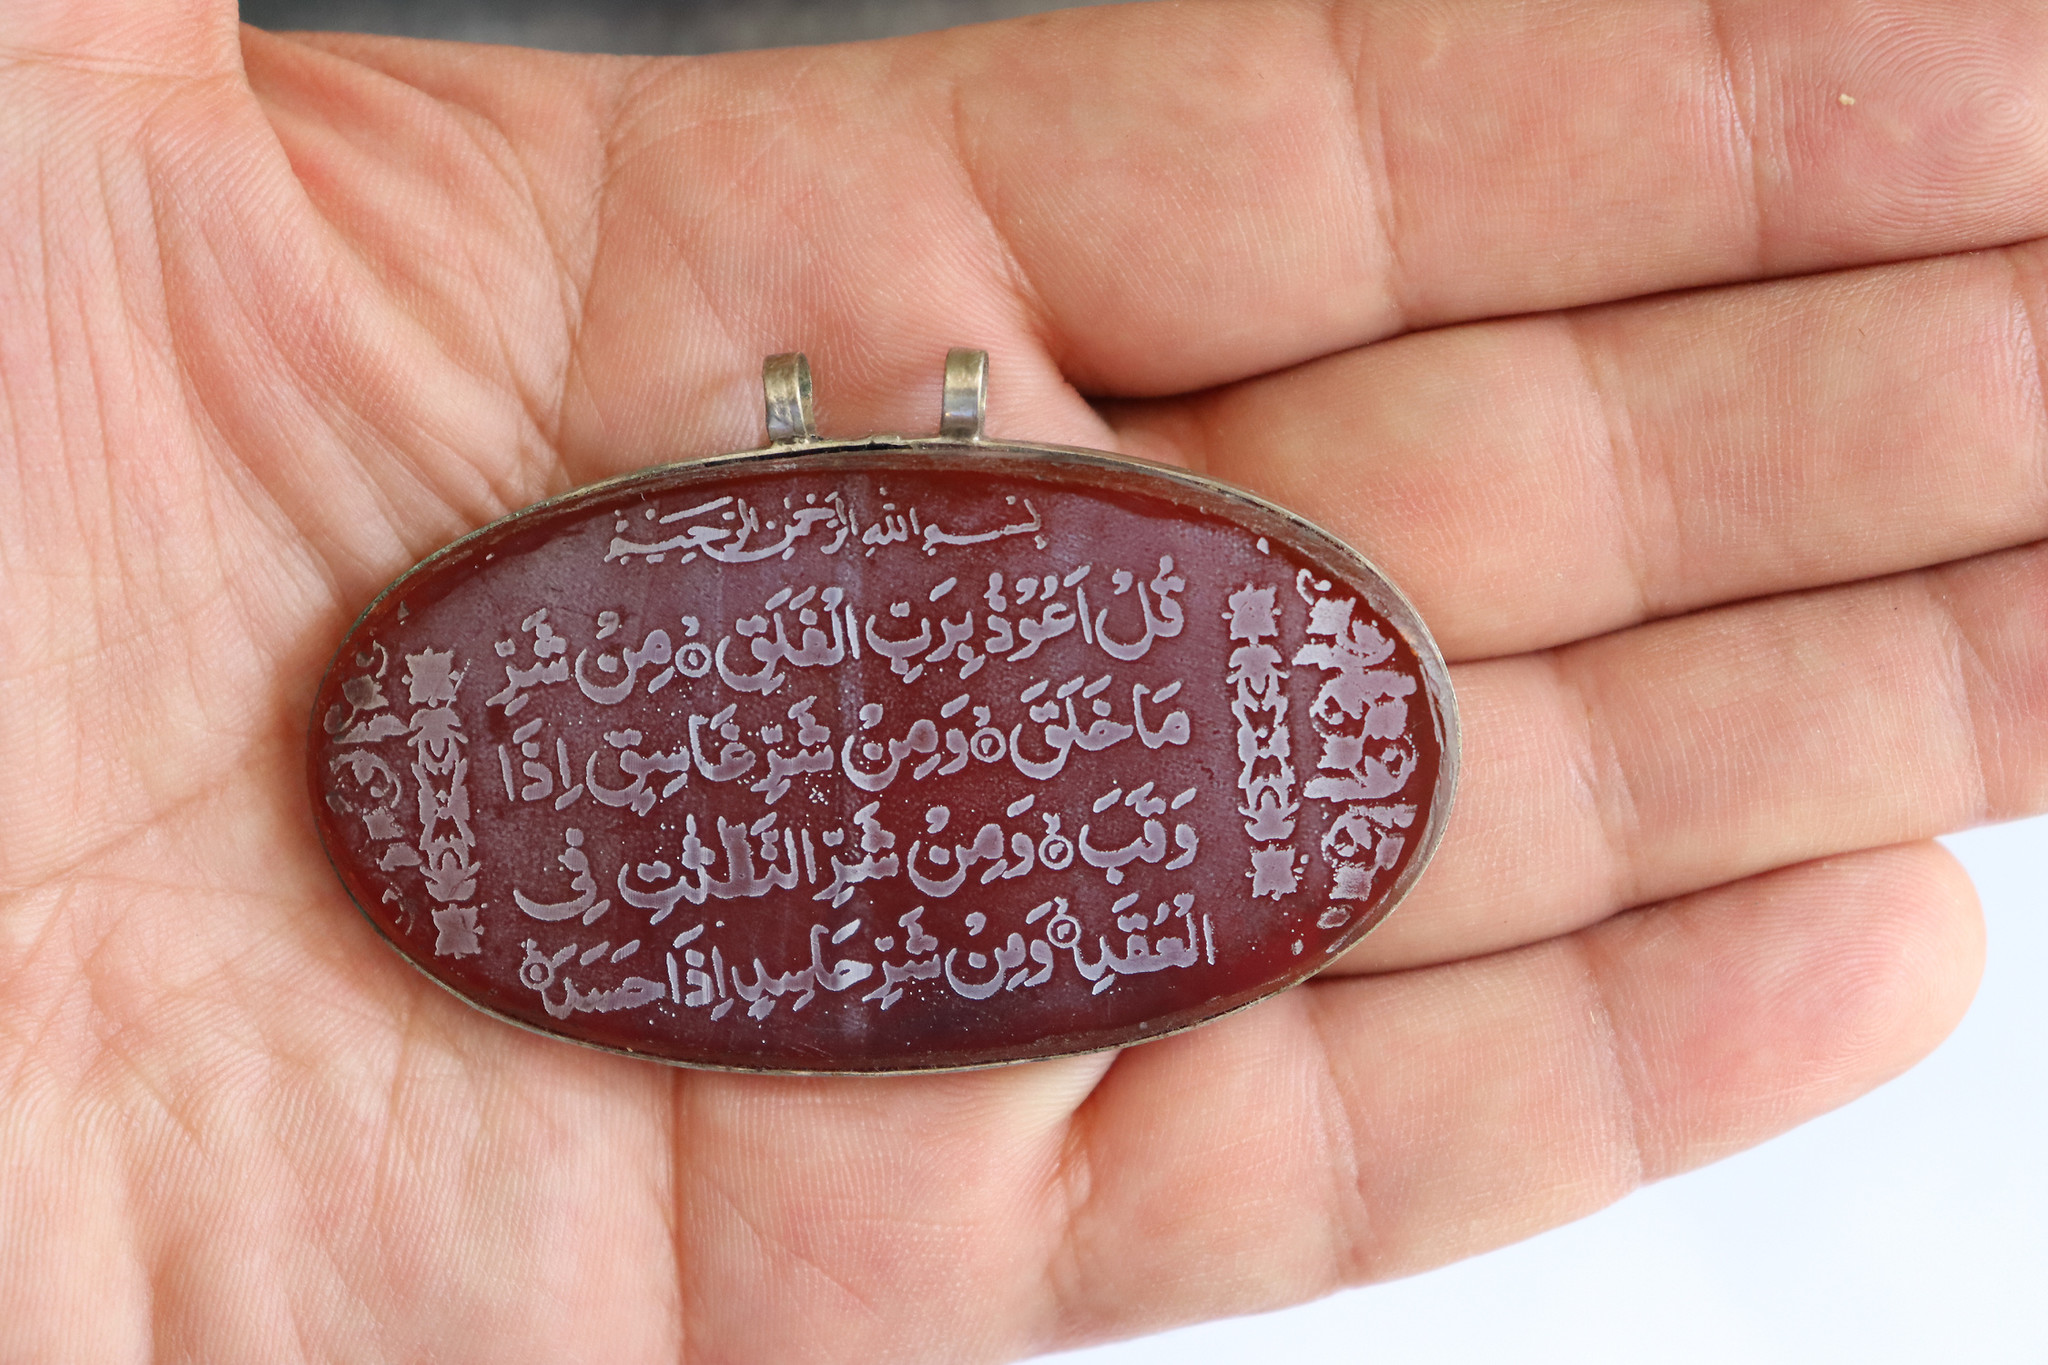 بسم الله الرحمن الرحيم
قُلْ اَعُوْذُ بِرَبِّ الْفَلَقِ ۝۱ مِنْ شَرِّ
مَا خَلَقَ ۝۲ وَمِنْ شَرِّ غَاسِقٍ اِذَا
وَقَبَ ۝۳ وَمِنْ شَرِّ النَّفّٰثٰتِ فِى
الْعُقَدِ ۝۴ وَمِنْ شَرِّ حَاسِدٍ اِذَا حَسَدَ ۝۵